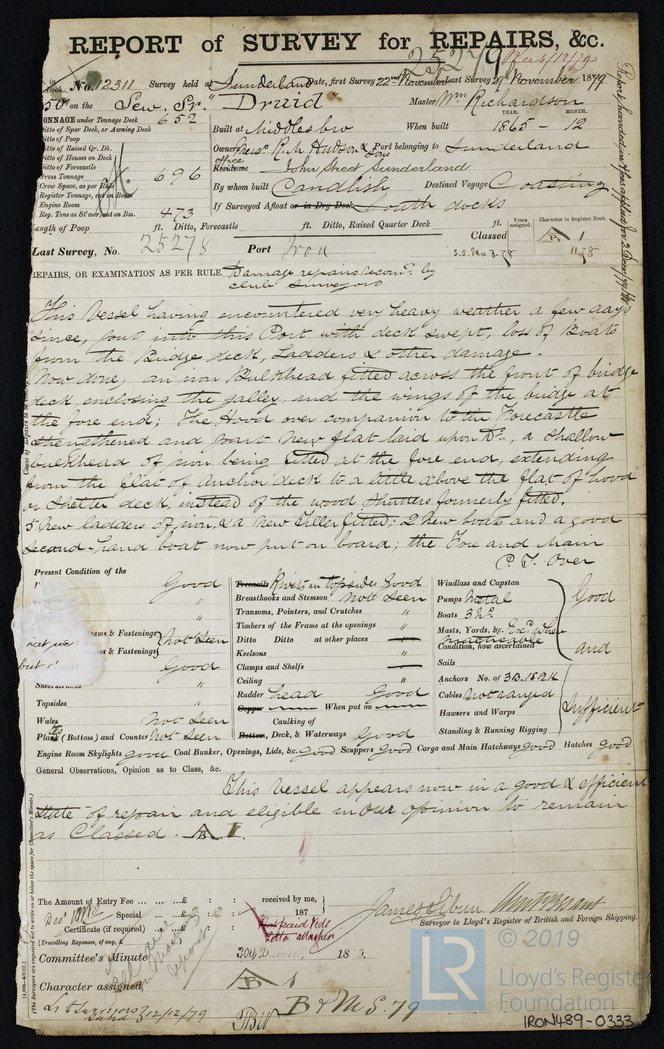 REPORT of SURVEY for REPAIRS, &c.
25279
No. 12311 Survey held at Sunderland Date, first Survey 22nd November Last Survey 29th November 1879
on the Sew. Sr. "Druid" Master Wm Richardson
TONNAGE under Tonnage Deck 652
Ditto of Spar Deck, or Awning Deck
Ditto of Poop
Ditto of Raised Qr. Dk.
Ditto of Houses on Deck
Ditto of Forecastle
Gross Tonnage 696
Crew Space, as per Rule
Register Tonnage, cut on Beam
Engine Room
Reg. Tons as St'mer, cut on Bm. 473
YEAR. MONTH.
Built at Middlesbro When built 1865 - 12
Owners Messrs R. M. Hudson & Sons Port belonging to Sunderland
office
Residence John Street Sunderland
By whom built Candlish Destined Voyage Coasting
If Surveyed Afloat or in Dry Dock South docks
Length of Poop ft. Ditto, Forecastle ft. Ditto, Raised Quarter Deck ft.
Years assigned. Character in Register Book
Classed A 1
Last Survey, No. 25278 Port Iron S.S. No 3.78 11.78
REPAIRS, OR EXAMINATION AS PER RULE Damage repairs recomd. by
club surveyors
This Vessel having encountered very heavy weather a few days
since, put into this Port with deck swept, loss of Boats
from the Bridge deck, Ladders & other damage.
Now done, an iron Bulkhead fitted across the front of bridge
deck, enclosing the galley, and the wings of the bridge at
the fore end; The Hood over companion to the Forecastle
strengthened and part New flat laid upon Do., a shallow
bulkhead of iron being fitted at the fore end, extending
from the flat of Anchor deck to a little above the flat of hood
or Shelter deck, instead of the wood Shutters formerly fitted.
5 New ladders of iron, & a New Tiller fitted; 2 New boats and a good
second-hand boat now put on board; the Fore and Main
P. T. Over
Present Condition of the
Good
"
"
& Fastenings Not Seen
& Fastenings
Good
"
Topsides "
Wales Not Seen
Plates (Bottom) and Counter Not Seen
Treenails Rivets in topsides Good
Breasthooks and Stemson Not Seen
Transoms, Pointers, and Crutches "
Timbers of the Frame at the openings "
Ditto Ditto at other places
Keelsons "
Clamps and Shelfs
Ceiling "
Rudder head Good
Copper When put on
Caulking of
Bottom, Deck, & Waterways Good
Windlass and Capstan
Pumps Metal
Boats 3 No.
Masts, Yards, &c.
Condition, how ascertained
Sails
Anchors No. of 3B.1S.2K
Cables Not ranged
Hawsers and Warps
Standing & Running Rigging
Good
and
Sufficient
Engine Room Skylights good Coal Bunker, Openings, Lids, &c. good Scuppers good Cargo and Main Hatchways good Hatches good
General Observations, Opinion as to Class, &c.
This Vessel appears now in a good & efficient
state of repair and eligible in our opinion to remain
as Classed A 1.
The Amount of Entry Fee ... ... £ : : received by me,
Special ... ... £ 187
Certificate (if required) ...
(Travelling Expenses, if any, £
Surveyor to Lloyd's Register of British and Foreign Shipping.
Committee's Minute 30th December 1879.
Character assigned A 1
B & M S. 79
© 2019
LR
Lloyd's Register
Foundation
IRON489-0333